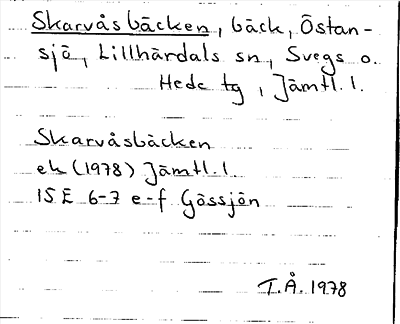 Skarvåsbäcken, bäck, Östan-
sjö, Lillhärdals sn, Svegs o.
Hede tg, Jämtl. l.
Skarvåsbäcken
ek (1978) Jämtl. l.
15 E 6-7 e-f Gössjön
T.Å. 1978